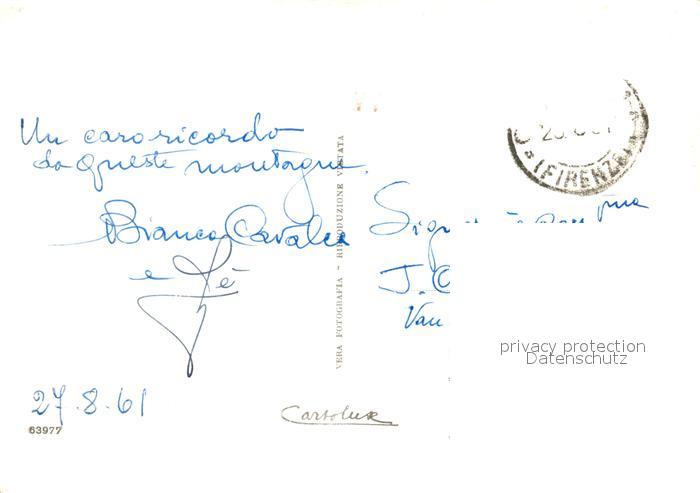 Un caro ricordo
da queste montagne.
Bianca Cavalca
e Fè
27.8.61
63977
VERA FOTOGRAFIA - RIPRODUZIONE VIETATA
Cartolux
(FIRENZE)
J.
privacy protection
Datenschutz